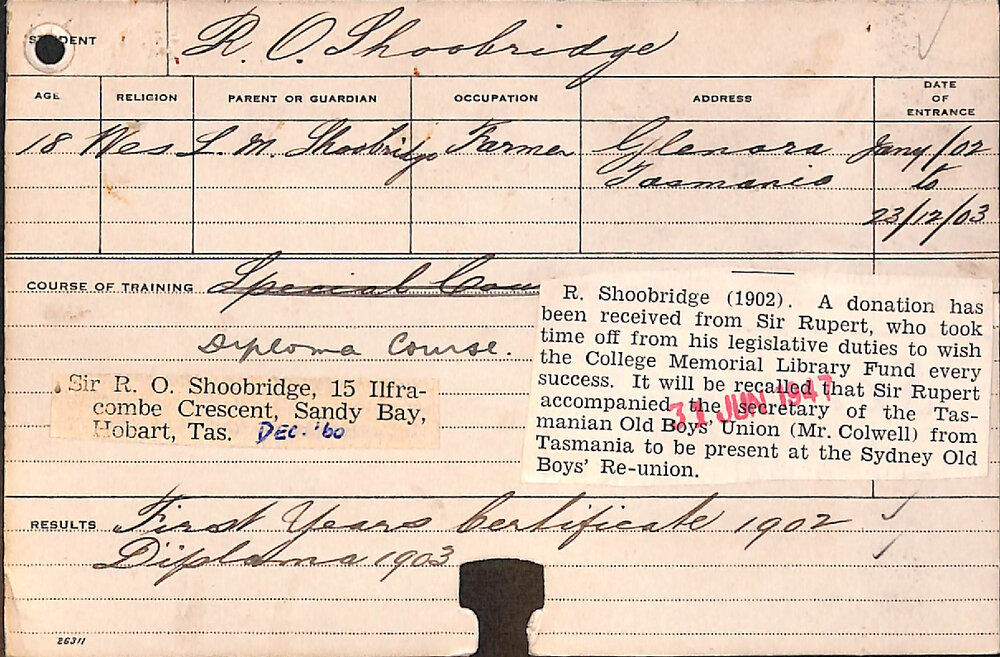 STUDENT R. O. Shoobridge
AGE RELIGION PARENT OR GUARDIAN OCCUPATION ADDRESS DATE OF ENTRANCE
18 Wes L. M. Shoobridge Farmer Glenora Jany/02
Tasmania to
23/12/03
COURSE OF TRAINING Special Cou
Diploma Course.
Sir R. O. Shoobridge, 15 Ilfra-
combe Crescent, Sandy Bay,
Hobart, Tas. DEC. '60
R. Shoobridge (1902). A donation has
been received from Sir Rupert, who took
time off from his legislative duties to wish
the College Memorial Library Fund every
success. It will be recalled that Sir Rupert
accompanied the secretary of the Tas-
manian Old Boys' Union (Mr. Colwell) from
Tasmania to be present at the Sydney Old
Boys' Re-union.
JUN 1947
RESULTS First Years Certificate 1902
Diploma 1903
26311